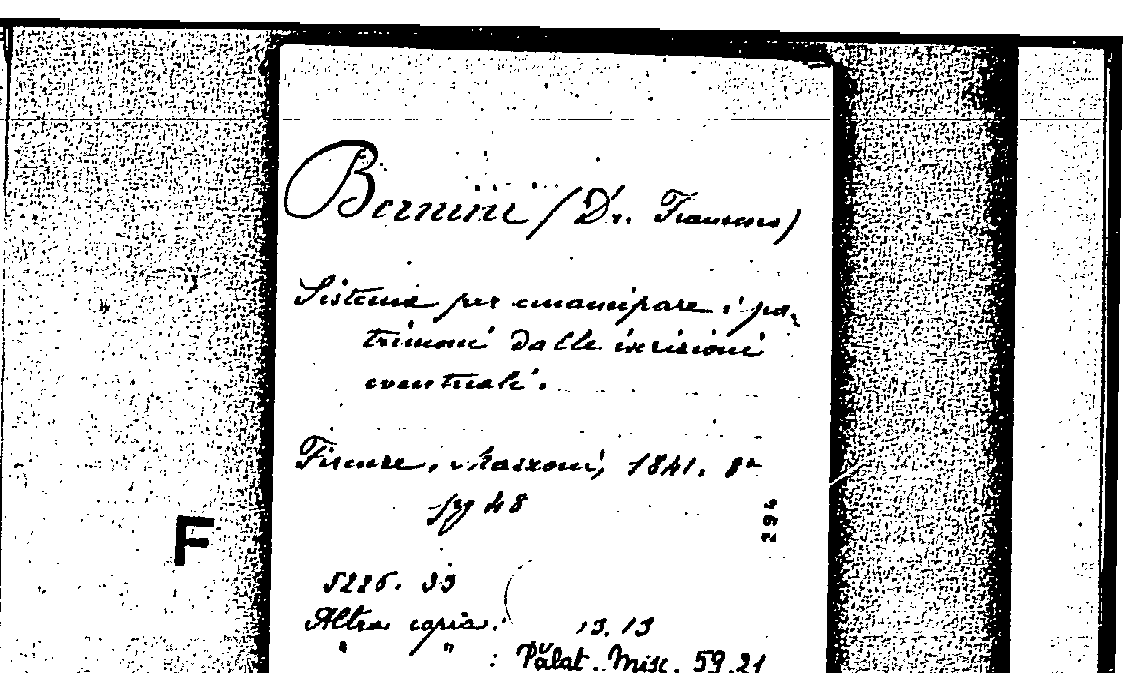 Bernini (Dr. Francesco)
Sistema per emancipare i pa-
trimoni dalle inrisioni
eventuali.
Firenze, Mazzoni, 1841. 8º
pg 48
294
F
5226. 33
Altra copia: 13. 13
" " : Palat. Misc. 59.21